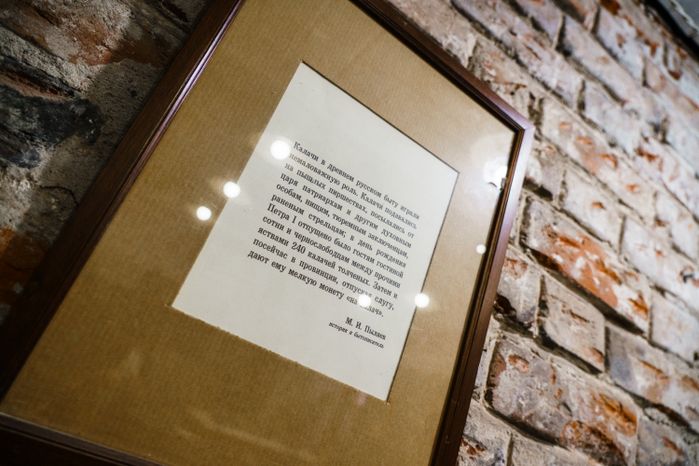 Калачи в древнем русском быту играли
немаловажную роль. Калачи подавались
на пышных пиршествах, посылались от
царя патриархам и другим духовным
особам, нищим, тюремным заключенным,
раненым стрельцам; в день рождения
Петра I отпущено было гостям гостиной
сотни и чернослободцам между прочими
яствами 240 калачей толченых. Затем и
посейчас в провинции, отпуская слугу,
дают ему мелкую монету «на калач».
М. И. Пыляев
историк и бытописатель